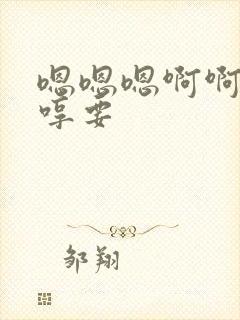 嗯嗯嗯啊啊
哼要
邹翔